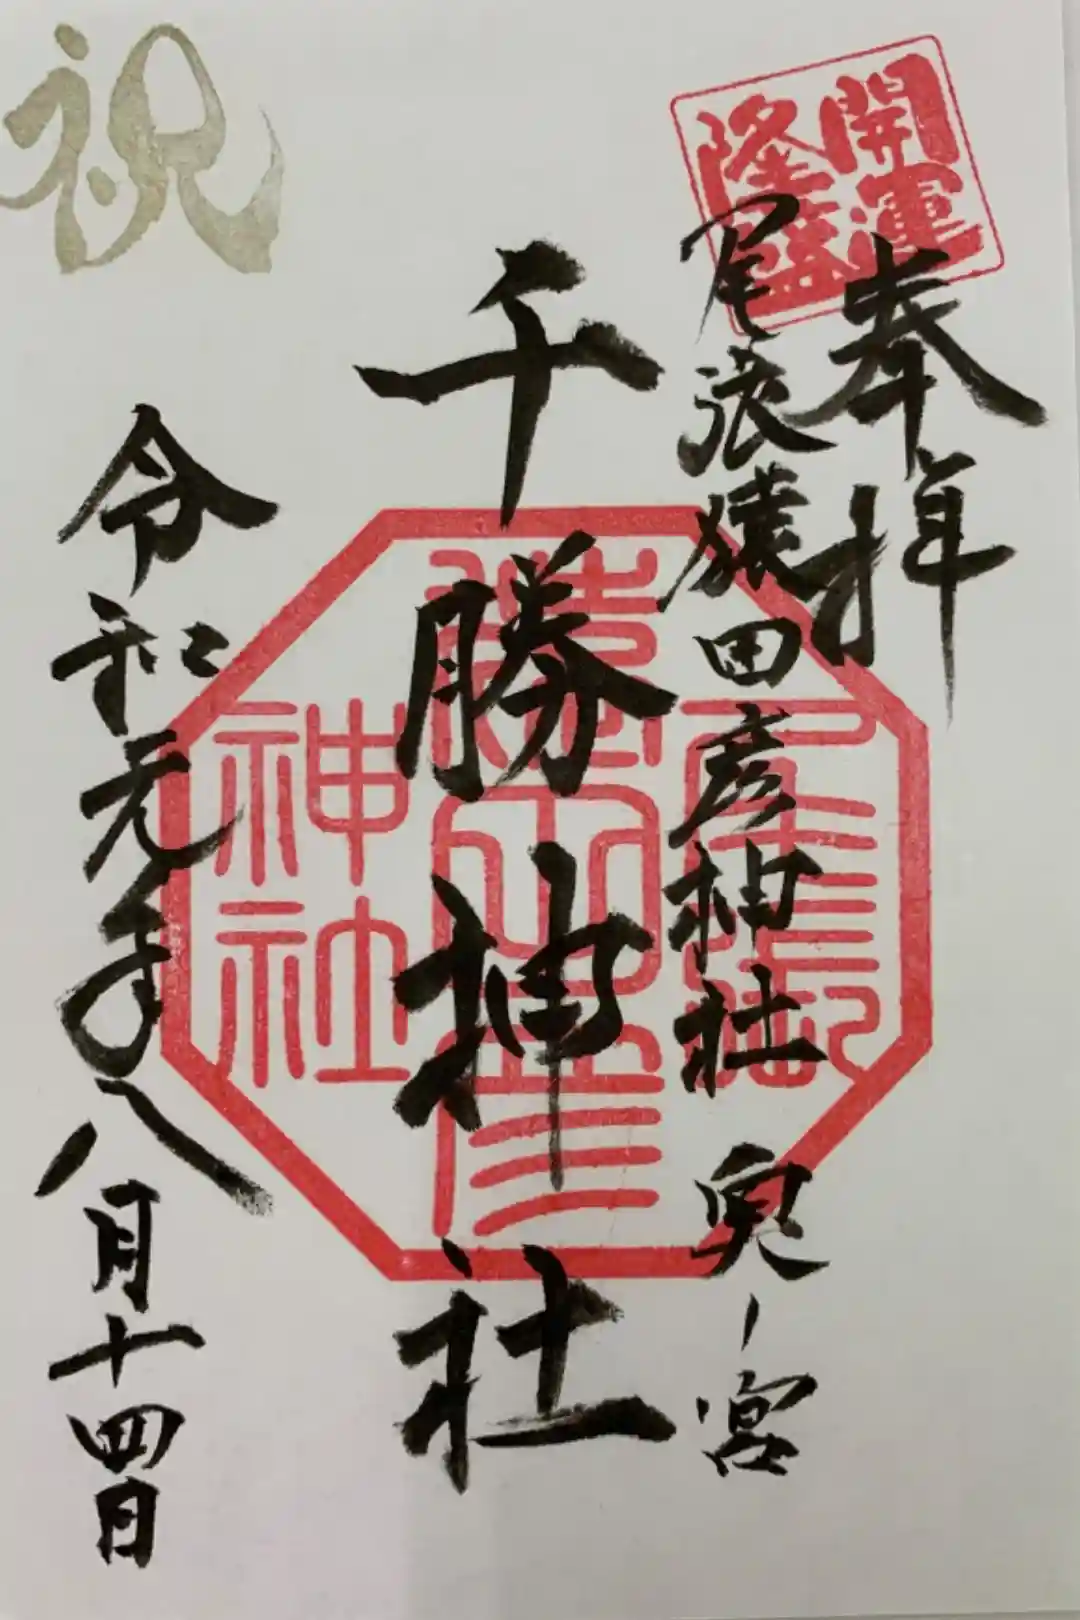 開運
隆盛
奉拝
尾張猿田彦神社 奥ノ宮
千勝神社
令和元年八月十四日
祝
尾張
猿田彦
神社